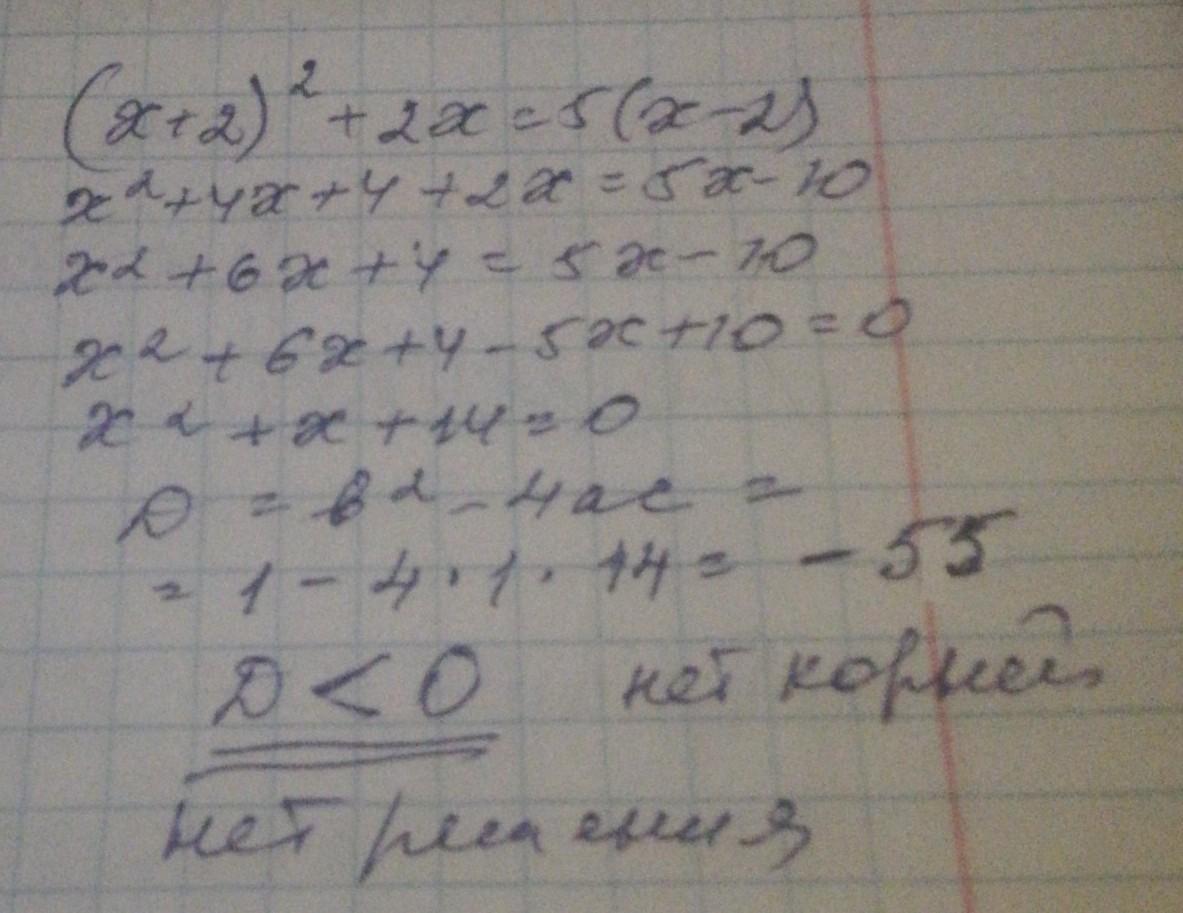 (x+2)² + 2x = 5(x-2)
x² + 4x + 4 + 2x = 5x - 10
x² + 6x + 4 = 5x - 10
x² + 6x + 4 - 5x + 10 = 0
x² + x + 14 = 0
D = b² - 4ac =
= 1 - 4 · 1 · 14 = - 55
D < 0 нет корней
нет решения